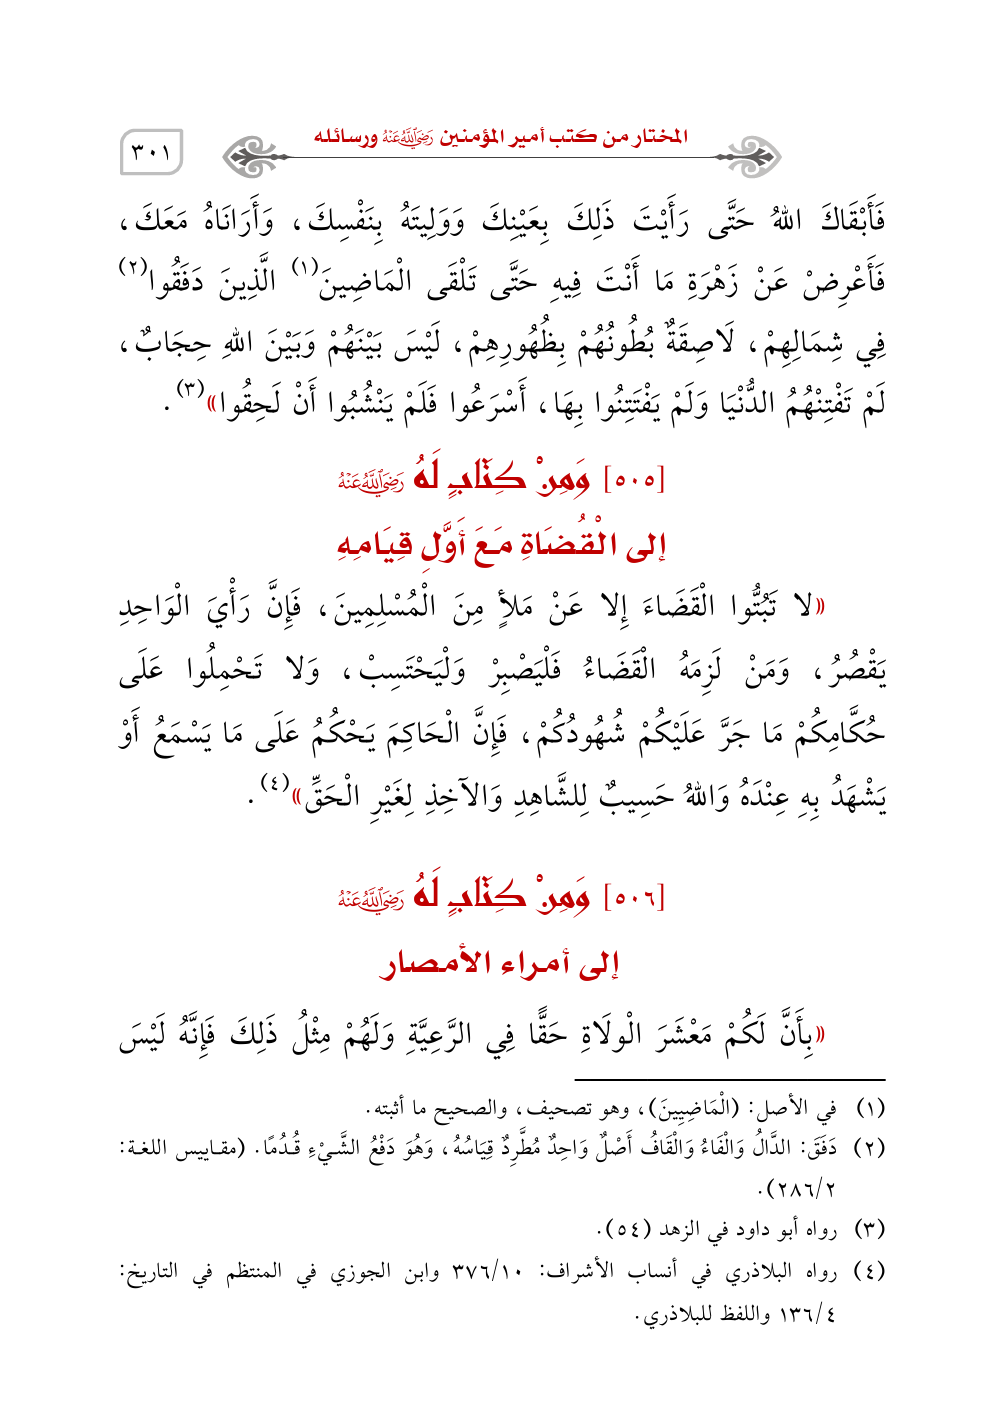 المختار من كتب أمير المؤمنين رَضِيَ اللَّهُ عَنْهُ ورسائله
٣٠١
فَأَبْقَاكَ اللهُ حَتَّى رَأَيْتَ ذَلِكَ بِعَيْنِكَ وَوَلِيتَهُ بِنَفْسِكَ، وَأَرَانَاهُ مَعَكَ،
فَأَعْرِضْ عَنْ زَهْرَةِ مَا أَنْتَ فِيهِ حَتَّى تَلْقَى الْمَاضِينَ(١) الَّذِينَ دَفَقُوا(٢)
فِي شِمَالِهِمْ، لَاصِقَةٌ بُطُونُهُمْ بِظُهُورِهِمْ، لَيْسَ بَيْنَهُمْ وَبَيْنَ اللهِ حِجَابٌ،
لَمْ تَفْتِنْهُمُ الدُّنْيَا وَلَمْ يَفْتَتِنُوا بِهَا، أَسْرَعُوا فَلَمْ يَنْشُبُوا أَنْ لَحِقُوا»(٣).
[٥٠٥] وَمِنْ كِتَابٍ لَهُ رَضِيَ اللَّهُ عَنْهُ
إلى الْقُضَاةِ مَعَ أَوَّلِ قِيَامِهِ
«لا تَبُتُّوا الْقَضَاءَ إِلا عَنْ مَلأٍ مِنَ الْمُسْلِمِينَ، فَإِنَّ رَأْيَ الْوَاحِدِ
يَقْصُرُ، وَمَنْ لَزِمَهُ الْقَضَاءُ فَلْيَصْبِرْ وَلْيَحْتَسِبْ، وَلا تَحْمِلُوا عَلَى
حُكَّامِكُمْ مَا جَرَّ عَلَيْكُمْ شُهُودُكُمْ، فَإِنَّ الْحَاكِمَ يَحْكُمُ عَلَى مَا يَسْمَعُ أَوْ
يَشْهَدُ بِهِ عِنْدَهُ وَاللهُ حَسِيبٌ لِلشَّاهِدِ وَالآخِذِ لِغَيْرِ الْحَقِّ»(٤).
[٥٠٦] وَمِنْ كِتَابٍ لَهُ رَضِيَ اللَّهُ عَنْهُ
إلى أمراء الأمصار
«بِأَنَّ لَكُمْ مَعْشَرَ الْولَاةِ حَقًّا فِي الرَّعِيَّةِ وَلَهُمْ مِثْلُ ذَلِكَ فَإِنَّهُ لَيْسَ
(١) في الأصل: (الْمَاضِيِينَ)، وهو تصحيف، والصحيح ما أثبته.
(٢) دَفَقَ: الدَّالُ وَالْفَاءُ وَالْقَافُ أَصْلٌ وَاحِدٌ مُطَّرِدٌ قِيَاسُهُ، وَهُوَ دَفْعُ الشَّيْءِ قُدُمًا. (مقاييس اللغة:
٢/‏٢٨٦).
(٣) رواه أبو داود في الزهد (٥٤).
(٤) رواه البلاذري في أنساب الأشراف: ١٠/‏٣٧٦ وابن الجوزي في المنتظم في التاريخ:
٤/‏١٣٦ واللفظ للبلاذري.